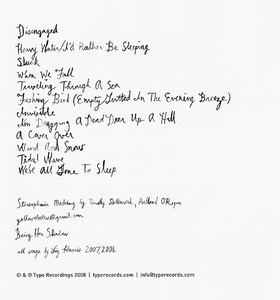 Disengaged
Heavy Water/I'd Rather Be Sleeping
Stuck
When We Fall
Traveling Through A Sea
Fishing Bird (Empty Gutted In The Evening Breeze)
Invisible
I'm Dragging A Dead Deer Up A Hill
A Cover Over
Wind And Snow
Tidal Wave
We've All Gone To Sleep
Stereophonic Mastering by Timothy Stollenwerk, Portland ORegon
@gmail.com
Being Her Shadow
all songs by Liz Harris 2007,2008.
© & ℗ Type Recordings 2008 | typerecords.com | info@typerecords.com